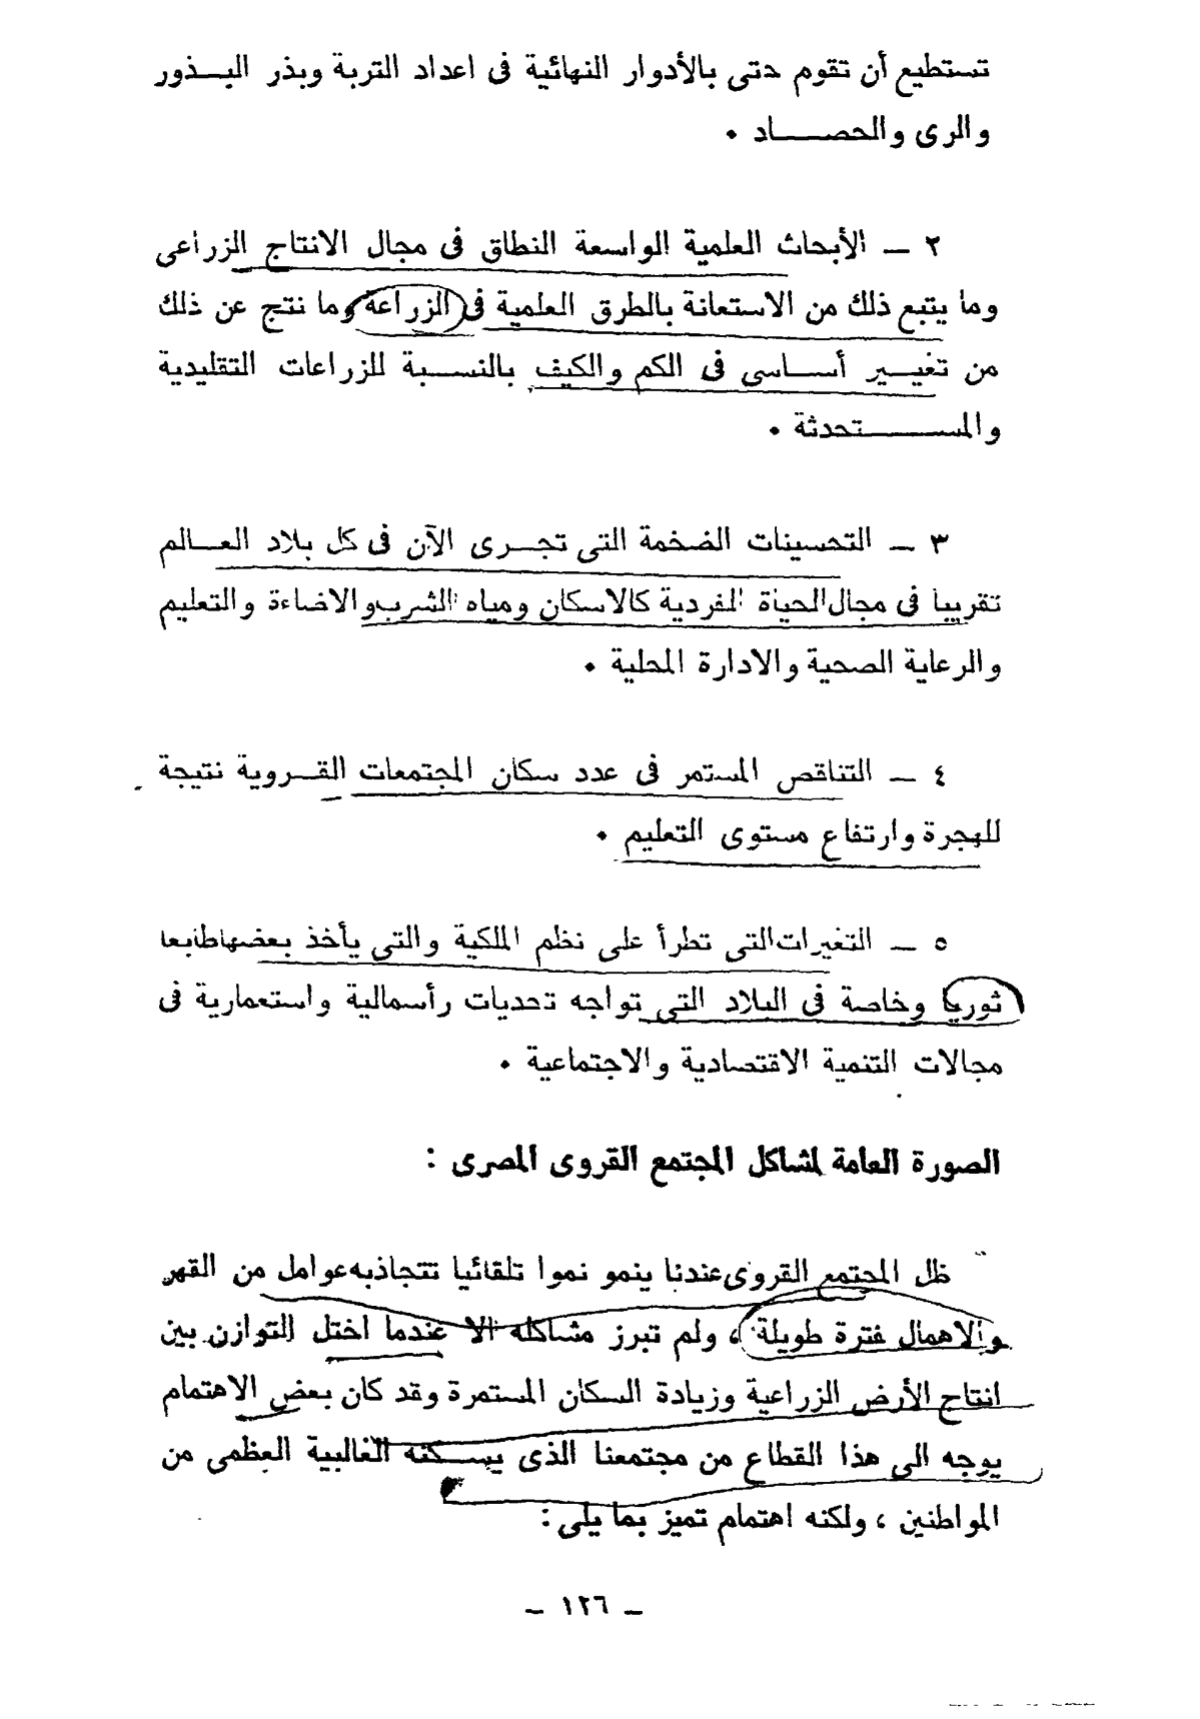 تستطيع أن تقوم حتى بالأدوار النهائية فى اعداد التربة وبذر البـــذور
والرى والحصـــــاد .
٢ ـ الأبحاث العلمية الواسعة النطاق فى مجال الانتاج الزراعى
وما يتبع ذلك من الاستعانة بالطرق العلمية فى الزراعة وما نتج عن ذلك
من تغيـــير أســـاسى فى الكم والكيف بالنســـبة للزراعات التقليدية
والمســــــــتحدثة .
٣ ـ التحسينات الضخمة التى تجـــرى الآن فى كل بلاد العـــالم
تقريبا فى مجال الحياة الفردية كالاسكان ومياه الشرب والاضاءة والتعليم
والرعاية الصحية والادارة المحلية .
٤ ـ التناقص المستمر فى عدد سكان المجتمعات القـــروية نتيجة
للهجرة وارتفاع مستوى التعليم .
٥ ـ التغيرات التى تطرأ على نظم الملكية والتى يأخذ بعضها طابعا
ثوريا وخاصة فى البلاد التى تواجه تحديات رأسمالية واستعمارية فى
مجالات التنمية الاقتصادية والاجتماعية .
الصورة العامة لمشاكل المجتمع القروى المصرى :
ظل المجتمع القروى عندنا ينمو نموا تلقائيا تتجاذبه عوامل من القهر
والاهمال فترة طويلة ، ولم تبرز مشاكله الا عندما اختل التوازن بين
انتاج الأرض الزراعية وزيادة السكان المستمرة وقد كان بعض الاهتمام
يوجه الى هذا القطاع من مجتمعنا الذى يســـكنه الغالبية العظمى من
المواطنين ، ولكنه اهتمام تميز بما يلى :
ـ ١٢٦ ـ